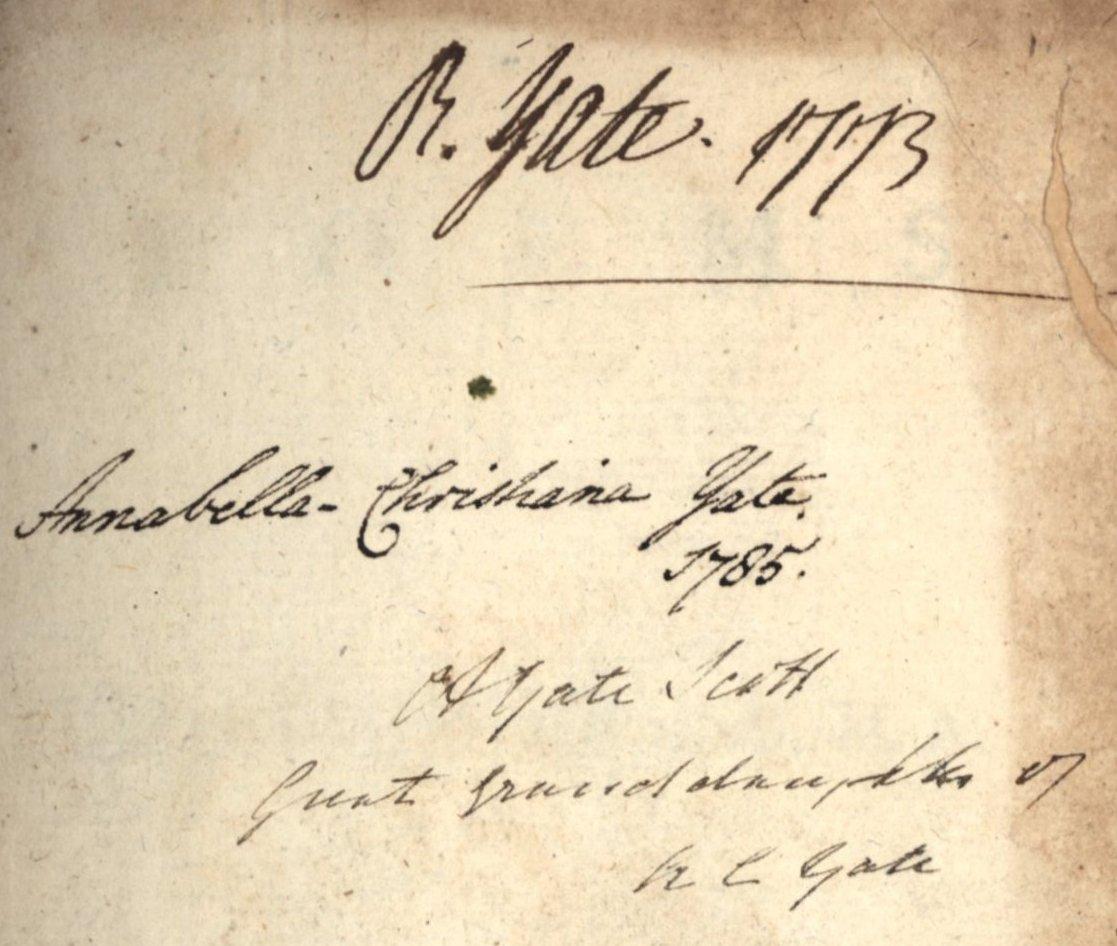 R. Yate. 1773
Annabella- Christiana Yate.
1785.
Yate Scott
Great Granddaughter of
A C Yate